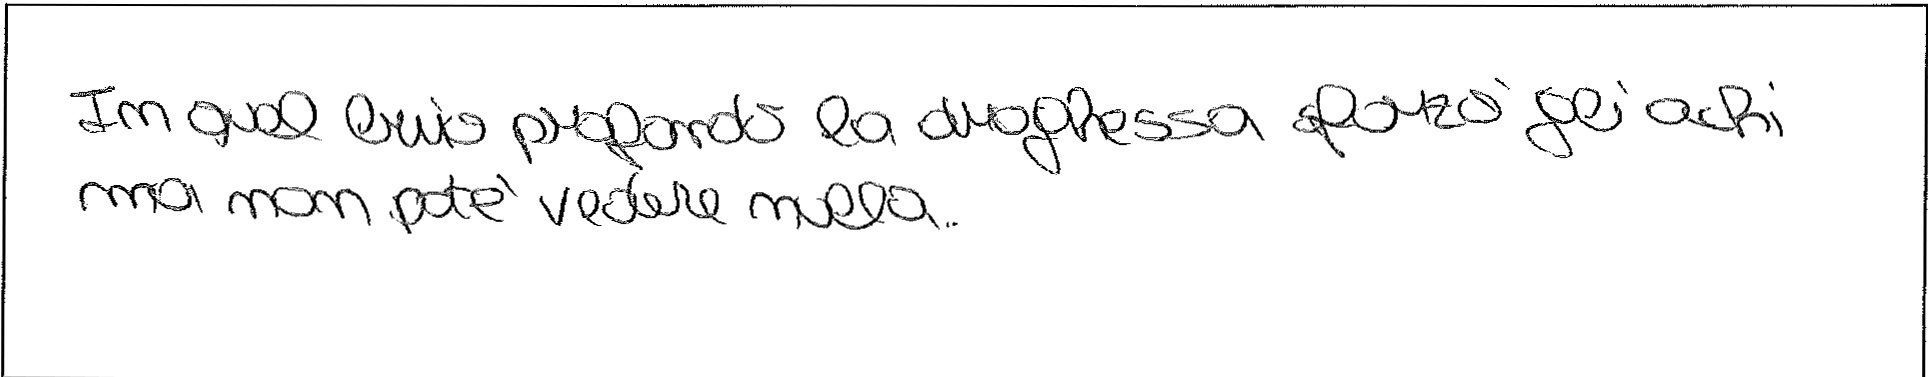 In quel buio profondo la draghessa sforzò gli ochi
ma non potè vedere nulla.